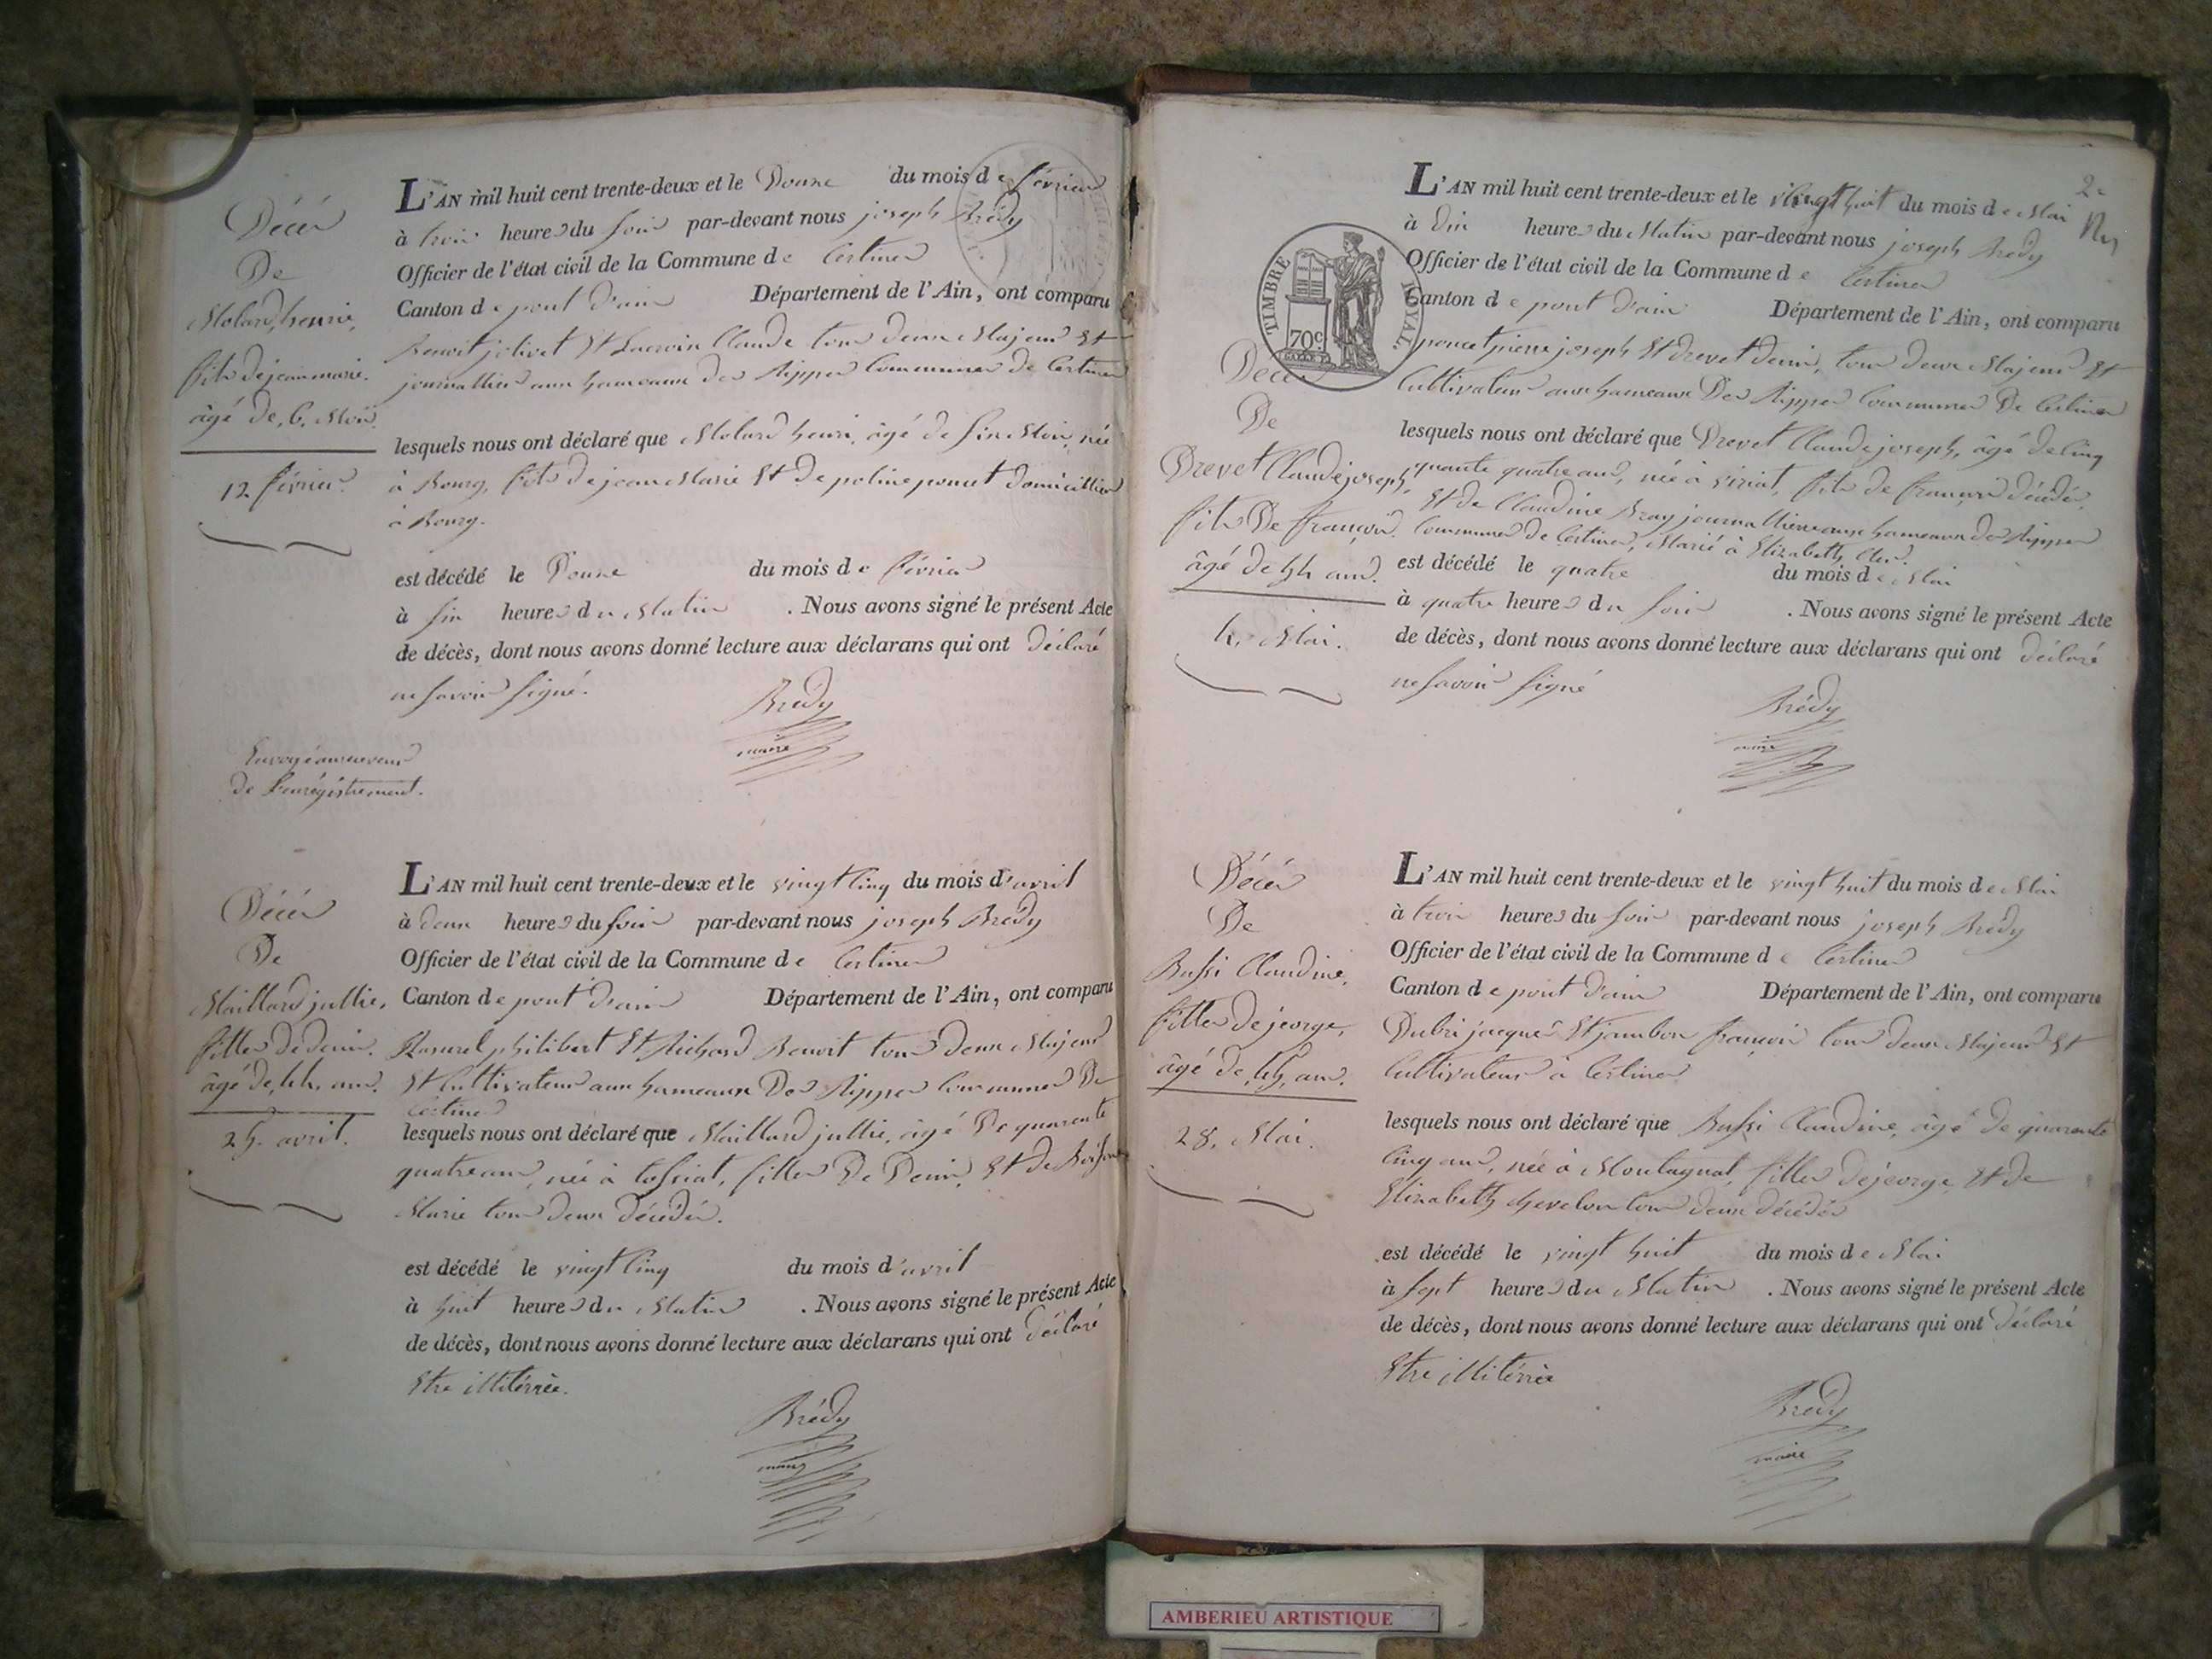 Décès
De
Molard, henrie,
fils de jean marie.
âgé de, 6, Mois.
12 février.
L'AN mil huit cent trente-deux et le Douze du mois de février
à trois heures du soir par-devant nous joseph Brédy
Officier de l'état civil de la Commune de Certines
Canton de pont d'ain Département de l'Ain, ont comparu
Benoit jolivet Et Lacroix Claude tous deux Majeurs Et
journallier aux hameaux des Rippes Communes de Certines
lesquels nous ont déclaré que Molard henri, âgé de six Mois, née
à Bourg, fils de jean Marie Et de poline poncet domicillier
à Bourg.
est décédé le Douze du mois de février
à six heures du Matin . Nous avons signé le présent Acte
de décès, dont nous avons donné lecture aux déclarans qui ont déclaré
ne savoir signé.
Brédy
maire
Envoyé au receveur
de l'enrégistrement.
Décès
De
Maillard jullie,
filles de denis.
âgé de, 44, ans.
25. avril.
L'AN mil huit cent trente-deux et le vingt cinq du mois d'avril
à deux heures du soir par-devant nous joseph Brédy
Officier de l'état civil de la Commune de Certines
Canton de pont d'ain Département de l'Ain, ont comparu
philibert Et Richard Benoit tous deux Majeurs
Et Cultivateurs aux hameaux Des Rippes Communes De
Certines
lesquels nous ont déclaré que Maillard jullie, âgé De quarente
quatre ans, née à tossiat, filles De Denis, Et de
Marie tous deux décédés.
est décédé le vingt cinq du mois d'avril
à huit heures du Matin . Nous avons signé le présent Acte
de décès, dont nous avons donné lecture aux déclarans qui ont déclaré
Etre illitérrée.
Brédy
maire
2e
TIMBRE ROYAL
70c
Décès
De
Drevet Claude joseph,
fils De françois.
âgé de 54 ans.
4, Mai.
L'AN mil huit cent trente-deux et le vingt huit du mois de Mai
à Dix heures du Matin par-devant nous joseph Brédy
Officier de l'état civil de la Commune de Certines
Canton de pont d'ain Département de l'Ain, ont comparu
poncet pierre joseph Et drevet denis, tous deux Majeurs Et
Cultivateurs aux hameaux Des Rippes Communes De Certines
lesquels nous ont déclaré que Drevet Claude joseph, âgé de cinq
quante quatre ans, née à viriat, fils de françois décédé,
Et de Claudine Bray journallière aux hameaux des Rippes
Communes de Certines, Marié à Elizabeth
est décédé le quatre du mois de Mai
à quatre heures du soir . Nous avons signé le présent Acte
de décès, dont nous avons donné lecture aux déclarans qui ont déclaré
ne savoir signé
Brédy
maire
Décès
De
Bussi Claudine,
filles de jeorge,
âgé de, 45, ans.
28, Mai.
L'AN mil huit cent trente-deux et le vingt huit du mois de Mai
à trois heures du soir par-devant nous joseph Brédy
Officier de l'état civil de la Commune de Certines
Canton de pont d'ain Département de l'Ain, ont comparu
Dubri jacques Et jambon françois tous deux Majeurs Et
Cultivateurs à Certines
lesquels nous ont déclaré que Bussi Claudine, âgé de quarente
cinq ans, née à Montagnat, filles de jeorge Et de
Elizabeth chevelon tous deux décédés
est décédé le vingt huit du mois de Mai
à sept heures du Matin . Nous avons signé le présent Acte
de décès, dont nous avons donné lecture aux déclarans qui ont déclaré
Etre illitérrée
Brédy
maire
AMBERIEU ARTISTIQUE